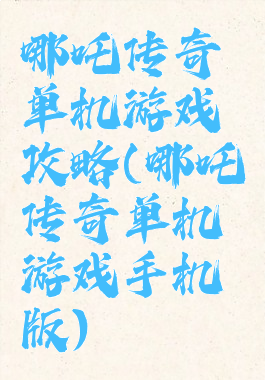 哪吒传奇
单机游戏
攻略(哪吒
传奇单机
游戏手机
版)